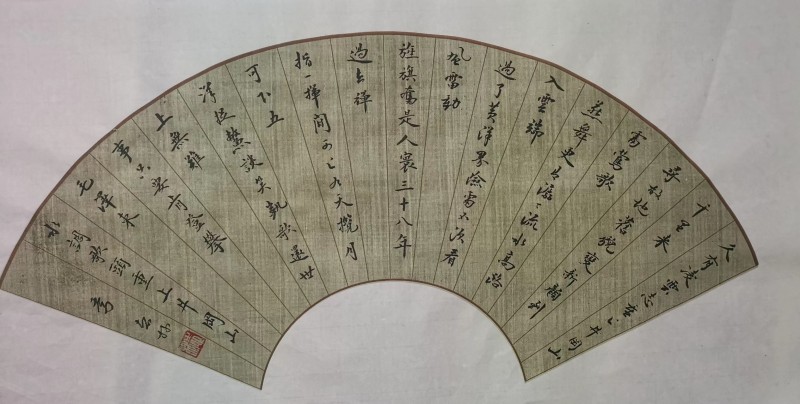 久有凌雲志重上井岡山
千里来
尋故地舊貌變新顏到
處鶯歌
燕舞更有潺々流水高路
入雲端
過了黄洋界險處不須看
風雷動
旌旗奮是人寰三十八年
過去彈
指一揮間可上九天攬月
可下五
洋捉鱉談笑凱歌還世
上無難
事只要肯登攀
毛澤東
水調歌頭重上井岡山